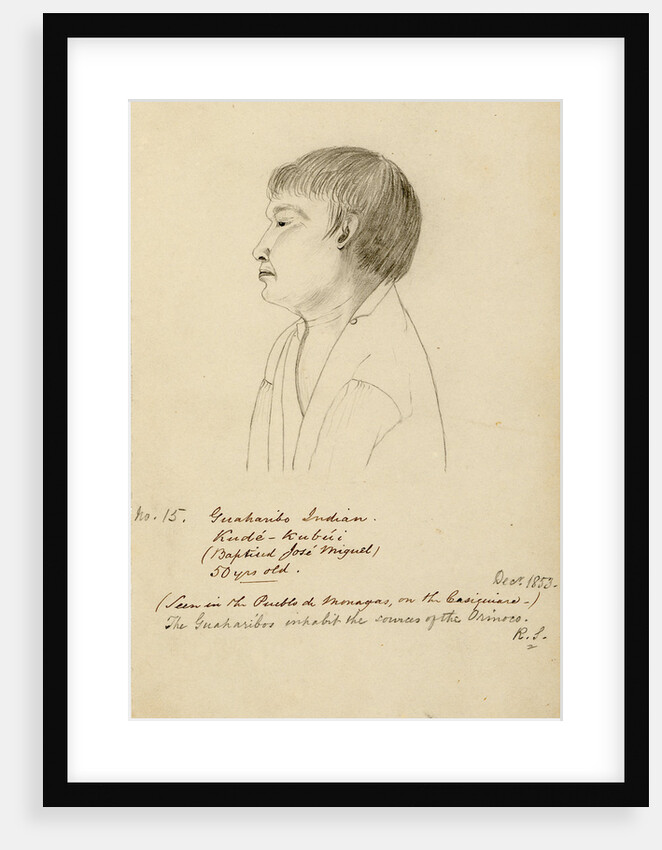 No. 15. Guaharibo Indian.
Kudé-Kubúi
(Baptised José Miguel)
50 yrs old.
Decr. 1853.
(Seen in the Pueblo de Monagas, on the Casiquiare-)
The Guaharibos inhabit the sources of the Orinoco.
R. S.